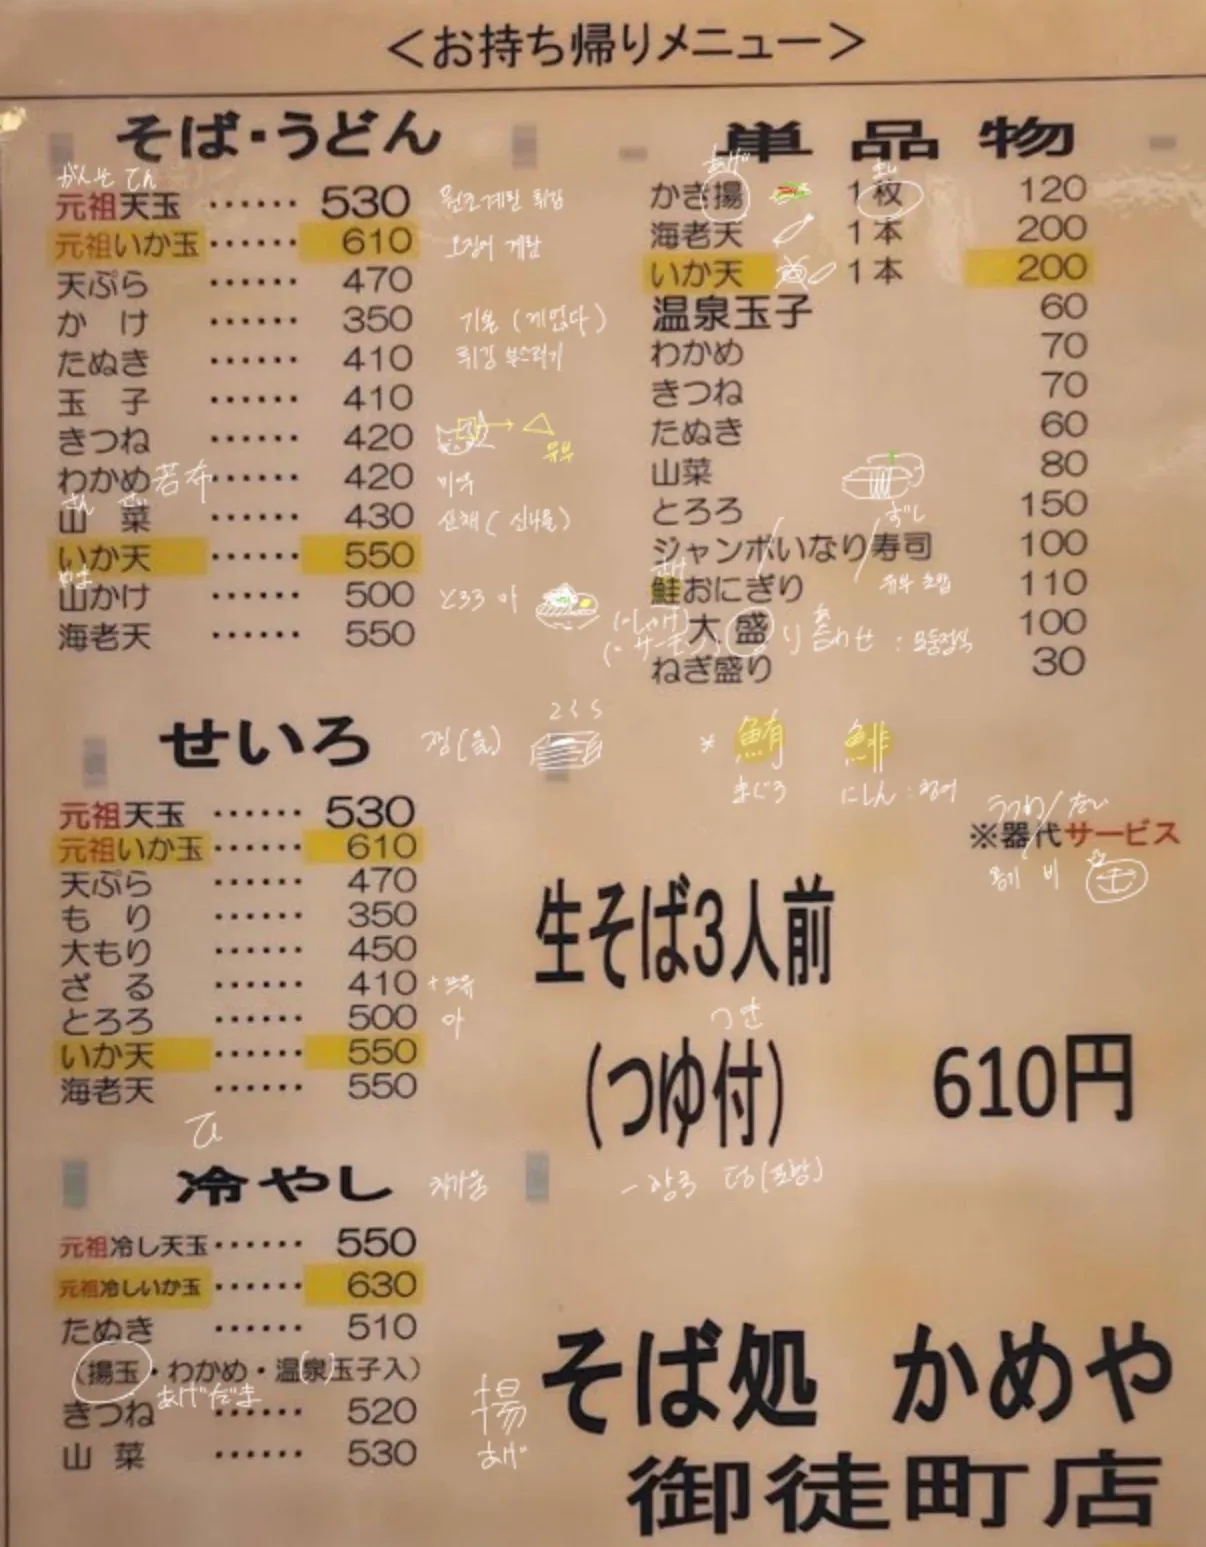 ＜お持ち帰りメニュー＞
そば・うどん
がんそ てん
元祖天玉 …… 530
元祖いか玉 …… 610
오징어 계란
天ぷら …… 470
かけ …… 350
たぬき …… 410
튀김 부스러기
玉子 …… 410
きつね …… 420
유부
わかめ …… 420
若布
미역
山菜 …… 430
いか天 …… 550
やま
山かけ …… 500
とろろ 마
海老天 …… 550
単品物
あげ
かき揚 1枚 120
海老天 1本 200
いか天 1本 200
温泉玉子 60
わかめ 70
きつね 70
たぬき 60
山菜 80
とろろ 150
ずし
ジャンボいなり寿司 100
유부 초밥
鮭おにぎり 110
大盛 100
り合わせ : 모둠정식
ねぎ盛り 30
せいろ
元祖天玉 …… 530
元祖いか玉 …… 610
天ぷら …… 470
もり …… 350
大もり …… 450
ざる …… 410
とろろ …… 500
마
いか天 …… 550
海老天 …… 550
* 鮪 鯡
まぐろ にしん : 청어
うつわ / だい
※器代サービス
용기 비
生そば3人前
つき
(つゆ付) 610円
ひ
冷やし
차가움
元祖冷し天玉 …… 550
元祖冷しいか玉 …… 630
たぬき …… 510
(揚玉・わかめ・温泉玉子入)
あげだま
きつね …… 520
山菜 …… 530
揚
あげ
そば処 かめや
御徒町店